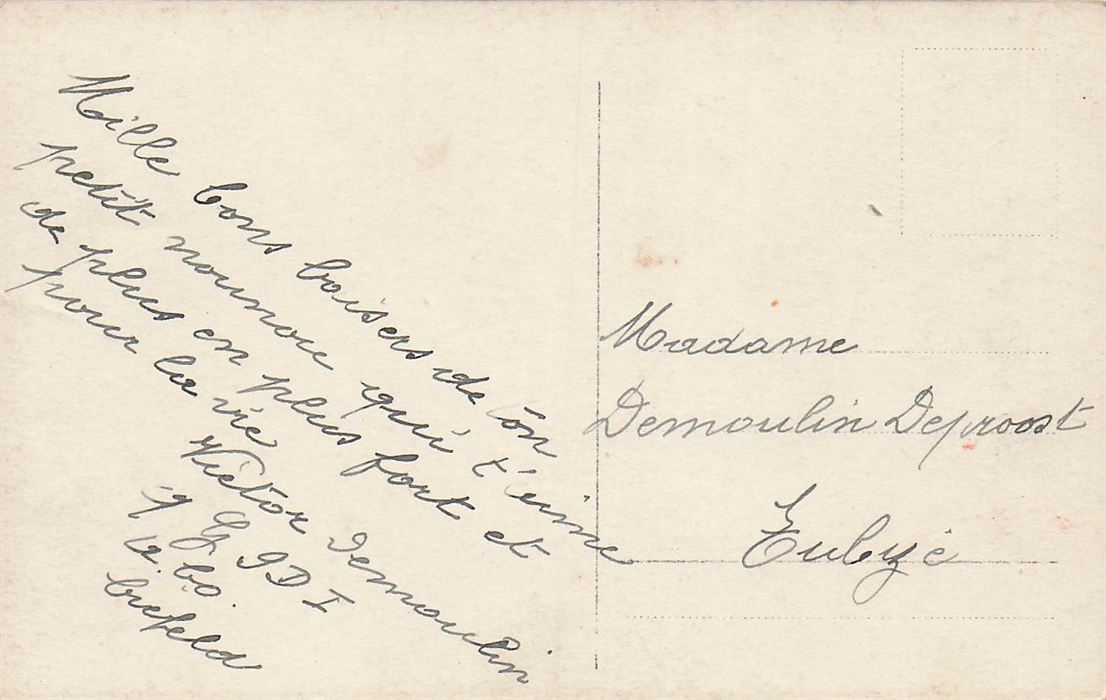 Mille bons baisers de ton
petit nounou qui t'eime
de plus en plus fort et
pour la vie
Victor Demoulin
9 G 9 D I
4e bo.
Crefeld
Madame
Demoulin Deproost
Eulyé